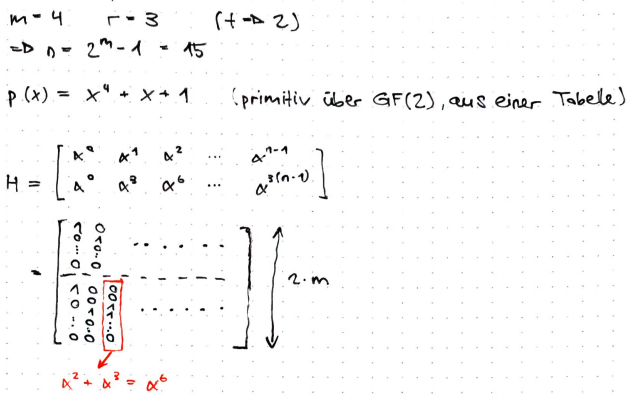 m = 4 r = 3 (t => 2)
=> n = 2^m - 1 = 15
p(x) = x^4 + x + 1 (primitiv über GF(2), aus einer Tabelle)
H = [ α^0 α^1 α^2 ... α^(n-1)
α^0 α^3 α^6 ... α^(3(n-1)) ]
= [ 1 0
0 1
: 0 . . . . . .
0 0
1 0 0
0 0 0
: 0 1 . . . . . .
0 1 1
0 0 0 ] 2·m
α^2 + α^3 = α^6